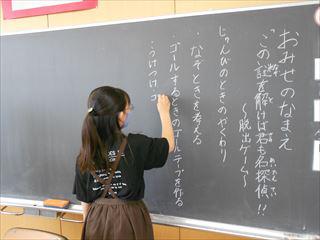 おみせのなまえ
この謎を解けば君も名探偵!!
〜脱出ゲーム〜
じゅんびのときのやくわり
・なぞときを考える
・ゴールするときのゴールテープを作る
・うけつけコ